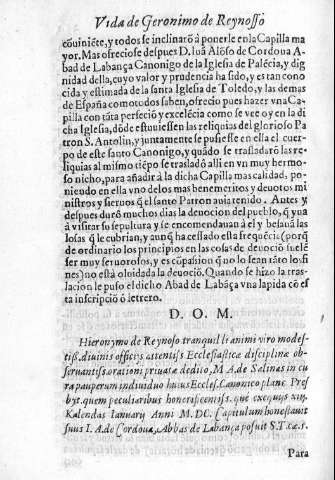 Vida de Geronimo de Reynosso
cõuiniẽte, y todos se inclinarõ à ponerle en la Capilla ma
yor. Mas ofreciose despues D. Iuã Alõso de Cordoua A-
bad de Labança Canonigo de la Iglesia de Palẽcia, y dig
nidad della, cuyo valor y prudencia ha sido, y es tan cono
cida y estimada de la santa Iglesia de Toledo, y las demas
de España como todos saben, ofrecio pues hazer vna Ca-
pilla con tãta perfeciõ y excelẽcia como se vee oy en la di
cha Iglesia, dõde estuuiessen las reliquias del glorioso Pa
tron S. Antolin, y juntamente se pusiesse en ella el cuer-
po de este santo Canonigo, y quãdo se trasladarõ las re-
liquias al mismo tiẽpo se trasladò alli en vn muy hermo-
so nicho, para añadir à la dicha Capilla mas calidad, po-
niendo en ella vno de los mas benemeritos y deuotos mi
nistros y sieruos q̃ el santo Patron auia tenido. Antes y
despues durò muchos dias la deuocion del pueblo, q̃ yua
à visitar su sepultura y se encomendauan à el y besauã las
losas q̃ le cubrian, y aunq̃ ha cessado esta frequẽcia (porq̃
de ordinario los principios en las cosas de deuociõ suelẽ
ser muy feruorosos, y es cõpasion q̃ no lo sean tãto los fi
nes) no està oluidada la deuociõ. Quando se hizo la tras-
lacion le puso el dicho Abad de Labãça vna lapida cõ es
ta inscripciõ ò letrero.
D. O. M.
Hieronymo de Reynoso tranquilli animi viro modes-
tiss. diuinis officijs assentiss Ecclesiasticæ disciplinæ ob-
seruantiss. orationi priuatæ dedito, M. A. de Salinas in cu
ra pauperum indiuiduo huius Eccles. Canonico planè Pres
byt. quem peculiaribus honorificentiss. què exequijs xiij.
Kalendas Ianuarij Anni M. DC. Capitulum honestauit
suus I. A. de Cordoua, Abbas de Labança posuit S. T. cæ. s.
Para